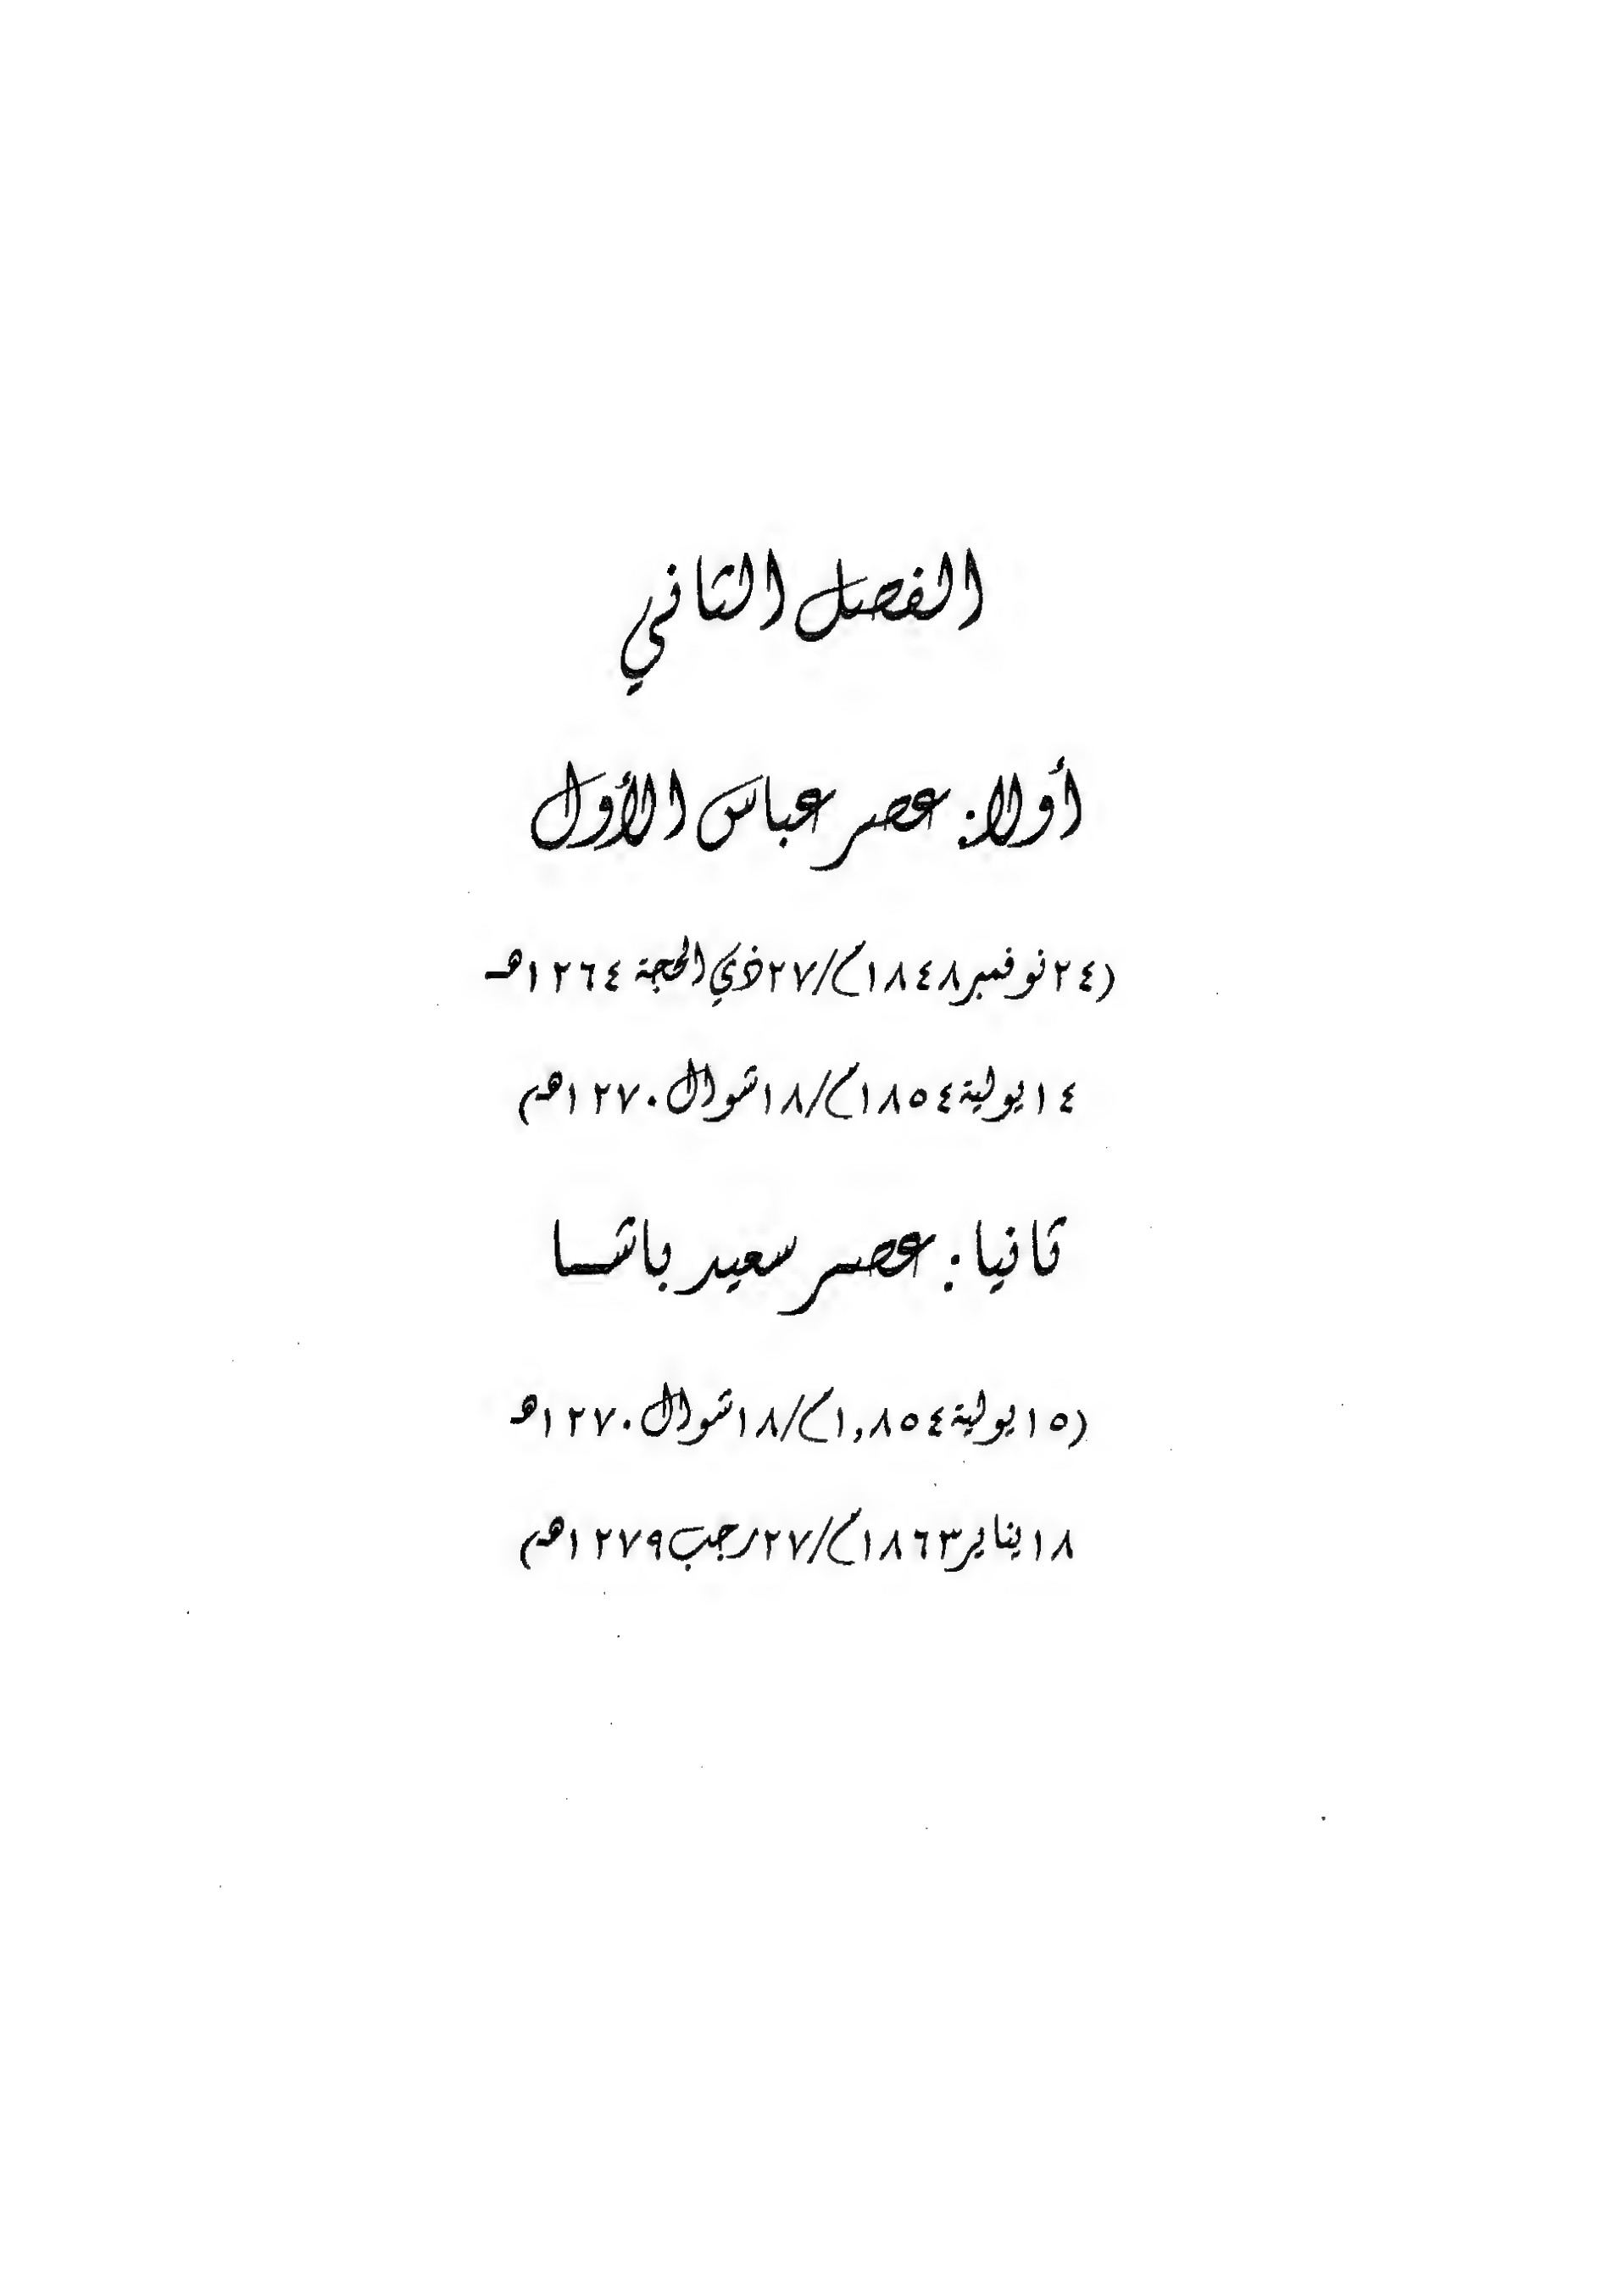 الفصل الثاني
أولا: عصر عباس الأول
(٢٤ نوفمبر ١٨٤٨م/٢٧ ذي الحجة ١٢٦٤هـ
١٤ يولية ١٨٥٤م/١٨ شوال ١٢٧٠هـ)
ثانيا: عصر سعيد باشا
(١٥ يولية ١,٨٥٤م/١٨ شوال ١٢٧٠هـ
١٨ يناير ١٨٦٣م/٢٧ رجب ١٢٧٩هـ)